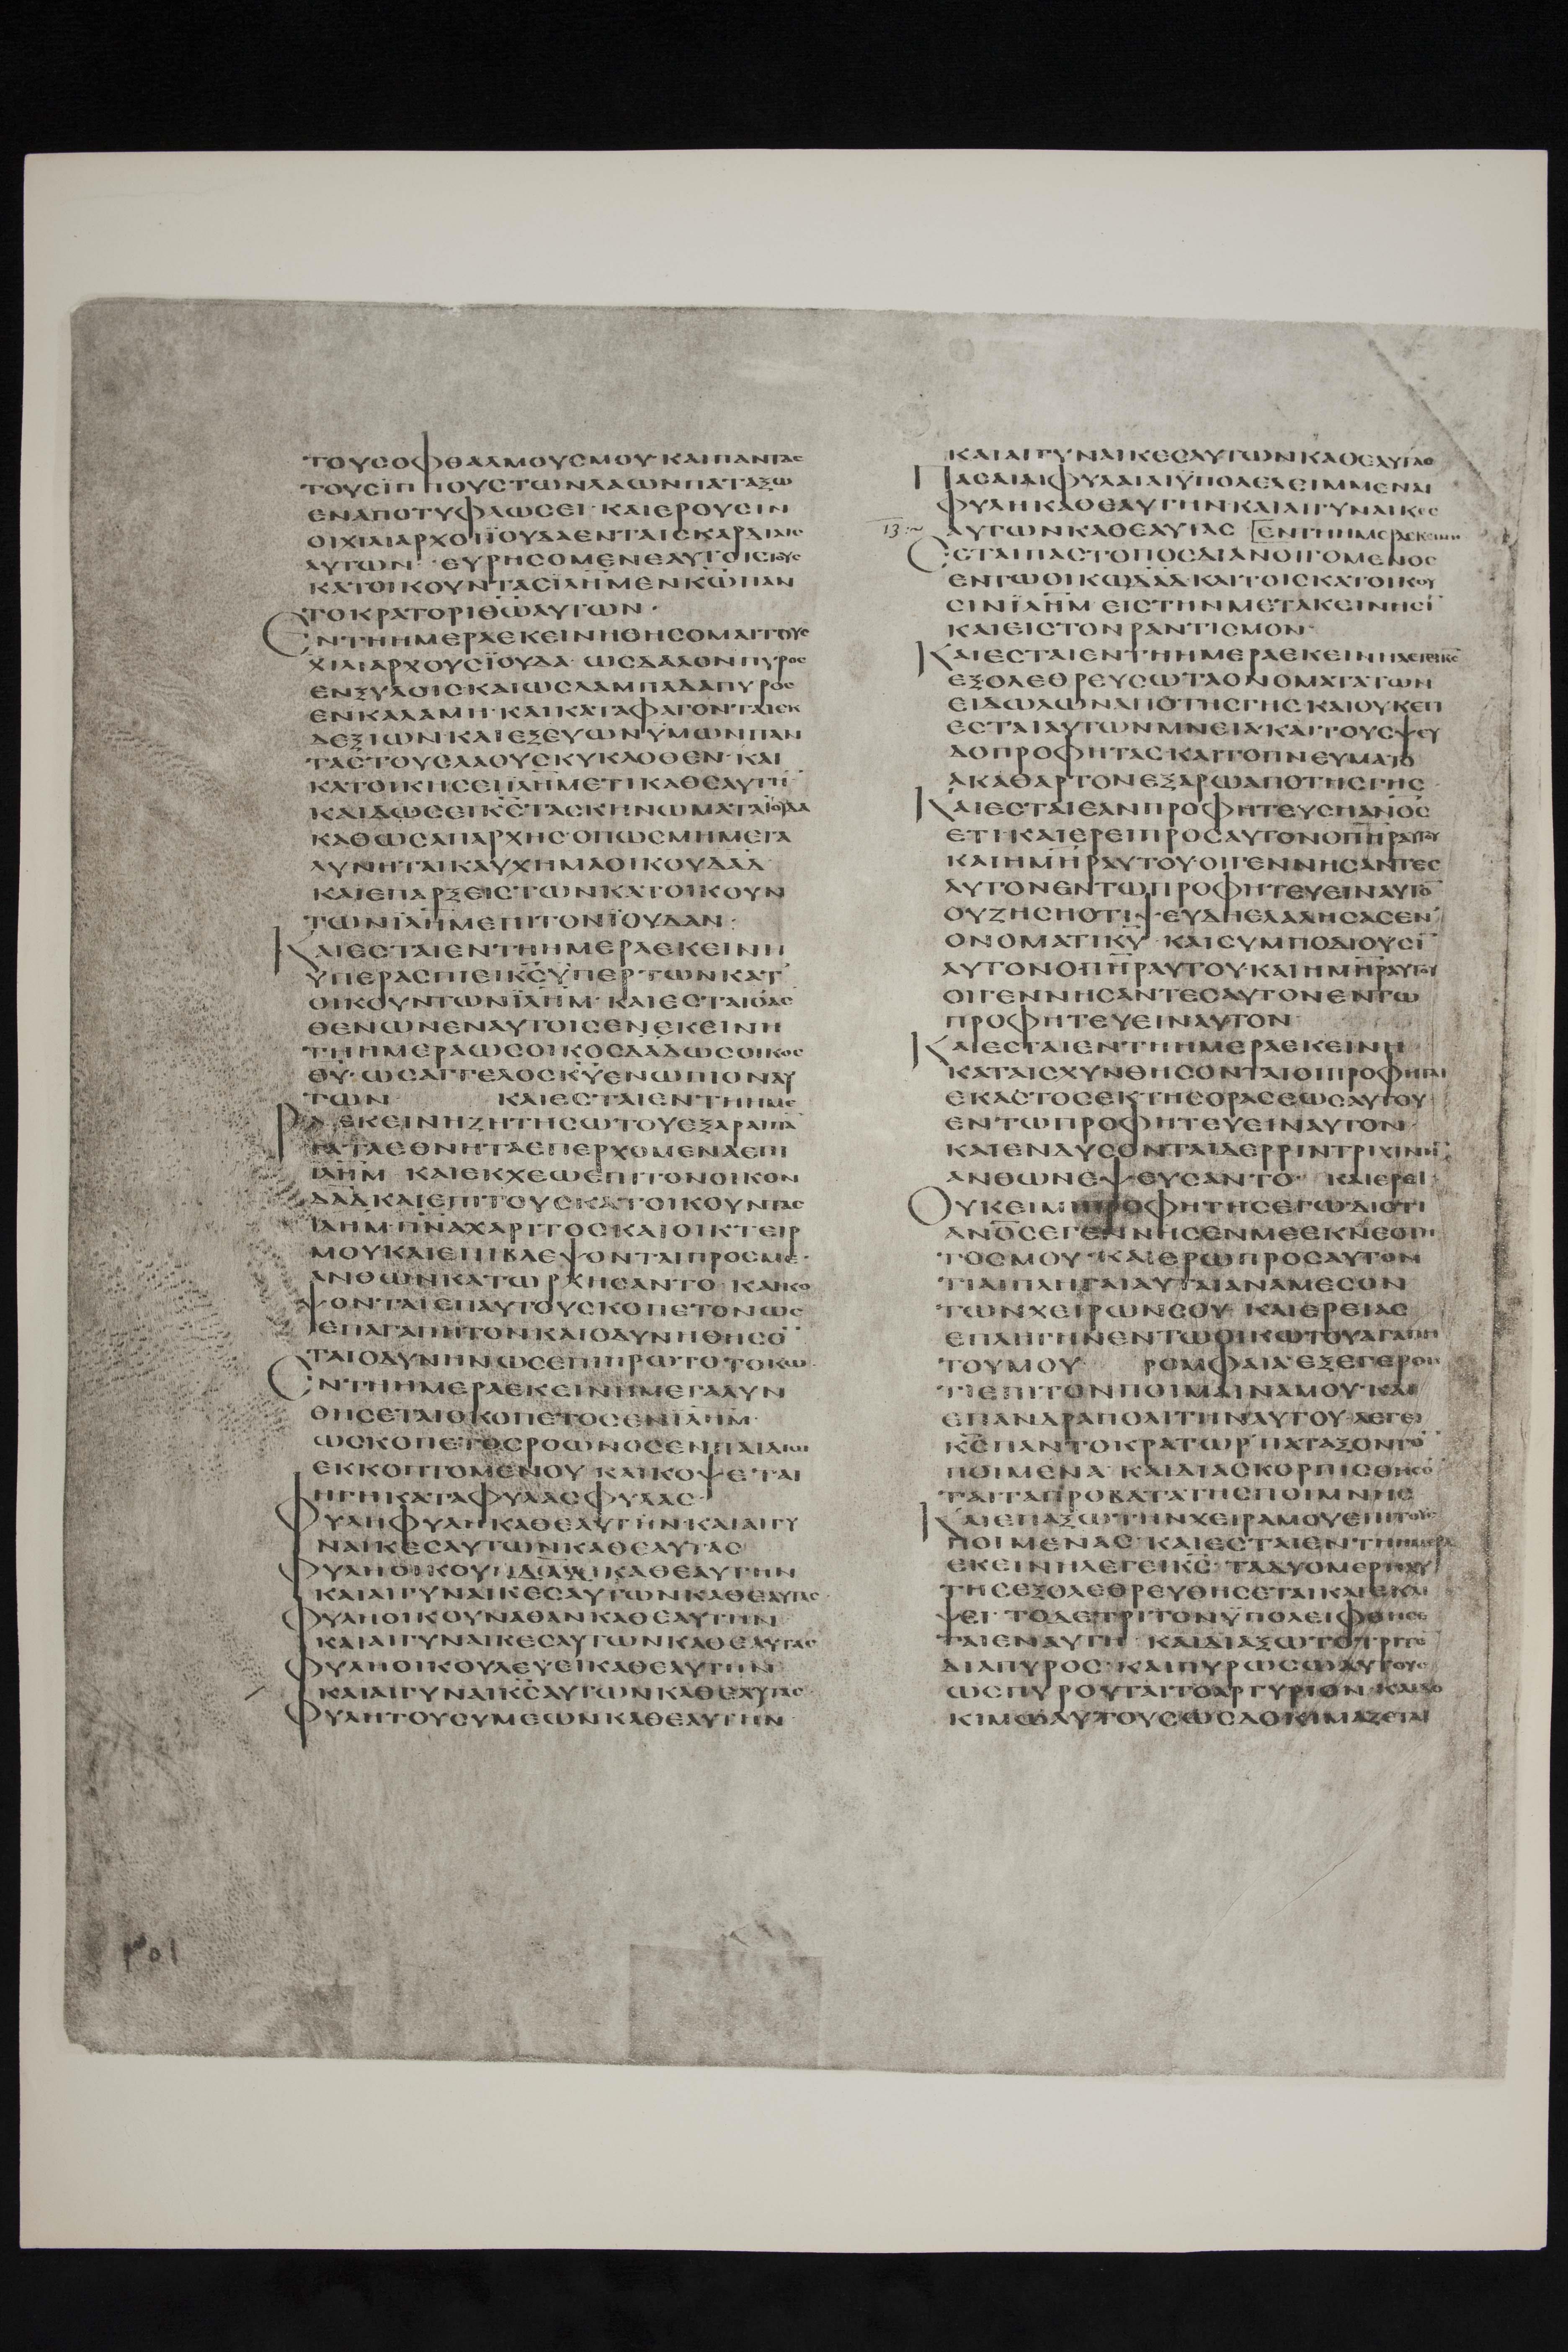 ΤΟΥΣΟΦΘΑΛΜΟΥΣΜΟΥ·ΚΑΙΠΑΝΤΑΣ
ΤΟΥΣΪΠΠΟΥΣΤΩΝΛΑΩΝΠΑΤΑΞΩ
ΕΝΑΠΟΤΥΦΛΩΣΕΙ·ΚΑΙΕΡΟΥΣΙΝ
ΟΙΧΙΛΙΑΡΧΟΙΪΟΥΔΑΕΝΤΑΙΣΚΑΡΔΙΑΙΣ
ΑΥΤΩΝ·ΕΥΡΗΣΟΜΕΝΕΑΥΤΟΙΣΤΟΥΣ
ΚΑΤΟΙΚΟΥΝΤΑΣΪΛΗΜΕΝΚΩΠΑΝ
ΤΟΚΡΑΤΟΡΙΘΩΑΥΤΩΝ·
ΕΝΤΗΗΜΕΡΑΕΚΕΙΝΗΘΗΣΟΜΑΙΤΟΥΣ
ΧΙΛΙΑΡΧΟΥΣΪΟΥΔΑ·ΩΣΔΑΛΟΝΠΥΡΟΣ
ΕΝΞΥΛΟΙΣΚΑΙΩΣΛΑΜΠΑΔΑΠΥΡΟΣ
ΕΝΚΑΛΑΜΗ·ΚΑΙΚΑΤΑΦΑΓΟΝΤΑΙΕΚ
ΔΕΞΙΩΝΚΑΙΕΞΕΥΩΝΥΜΩΝΠΑΝ
ΤΑΣΤΟΥΣΛΑΟΥΣΚΥΚΛΟΘΕΝ·ΚΑΙ
ΚΑΤΟΙΚΗΣΕΙΪΛΗΜΕΤΙΚΑΘΕΑΥΤΗ
ΚΑΙΔΩΣΕΙΚΣΤΑΣΚΗΝΩΜΑΤΑΪΟΥΔΑ
ΚΑΘΩΣΑΠΑΡΧΗΣ·ΟΠΩΣΜΗΜΕΓΑ
ΛΥΝΗΤΑΙΚΑΥΧΗΜΑΟΙΚΟΥΔΑΔ
ΚΑΙΕΠΑΡΣΕΙΣΤΩΝΚΑΤΟΙΚΟΥΝ
ΤΩΝΪΛΗΜΕΠΙΤΟΝΪΟΥΔΑΝ·
ΚΑΙΕΣΤΑΙΕΝΤΗΗΜΕΡΑΕΚΕΙΝΗ
ΥΠΕΡΑΣΠΙΕΙΚΣΥΠΕΡΤΩΝΚΑΤ
ΟΙΚΟΥΝΤΩΝΪΛΗΜ·ΚΑΙΕΣΤΑΙΟΑΣ
ΘΕΝΩΝΕΝΑΥΤΟΙΣΕΝΕΚΕΙΝΗ
ΤΗΗΜΕΡΑΩΣΟΙΚΟΣΔΑΔΩΣΟΙΚΟΣ
ΘΥ·ΩΣΑΓΓΕΛΟΣΚΥΕΝΩΠΙΟΝΑΥ
ΤΩΝ ΚΑΙΕΣΤΑΙΕΝΤΗΗΜΕ
ΡΑΕΚΕΙΝΗΖΗΤΗΣΩΤΟΥΕΞΑΡΑΙΠΑ
ΤΑΤΑΕΘΝΗΤΑΕΠΕΡΧΟΜΕΝΑΕΠΙ
ΪΛΗΜ·ΚΑΙΕΚΧΕΩΕΠΙΤΟΝΟΙΚΟΝ
ΔΑΔΚΑΙΕΠΙΤΟΥΣΚΑΤΟΙΚΟΥΝΤΑΣ
ΪΛΗΜ·ΠΝΑΧΑΡΙΤΟΣΚΑΙΟΙΚΤΕΙΡ
ΜΟΥΚΑΙΕΠΙΒΛΕΨΟΝΤΑΙΠΡΟΣΜΕ·
ΑΝΘΩΝΚΑΤΩΡΧΗΣΑΝΤΟ·ΚΑΙΚΟ
ΨΟΝΤΑΙΕΠΑΥΤΟΥΣΚΟΠΕΤΟΝΩΣ
ΕΠΑΓΑΠΗΤΟΝΚΑΙΟΔΥΝΗΘΗΣΟ
ΤΑΙΟΔΥΝΗΝΩΣΕΠΙΠΡΩΤΟΤΟΚΩ·
ΕΝΤΗΗΜΕΡΑΕΚΕΙΝΗΜΕΓΑΛΥΝ
ΘΗΣΕΤΑΙΟΚΟΠΕΤΟΣΕΝΪΛΗΜ·
ΩΣΚΟΠΕΤΟΣΡΟΩΝΟΣΕΝΠΑΙΔΙΩ
ΕΚΚΟΠΤΟΜΕΝΟΥ·ΚΑΙΚΟΨΕΤΑΙ
ΗΓΗΚΑΤΑΦΥΛΑΣΦΥΛΑΣ·
ΦΥΛΗΦΥΛΗΚΑΘΕΑΥΤΗΝ·ΚΑΙΑΙΓΥ
ΝΑΙΚΕΣΑΥΤΩΝΚΑΘΕΑΥΤΑΣ
ΦΥΛΗΟΙΚΟΥΔΑΔΚΑΘΕΑΥΤΗΝ
ΚΑΙΑΙΓΥΝΑΙΚΕΣΑΥΤΩΝΚΑΘΕΑΥΤΑΣ·
ΦΥΛΗΟΙΚΟΥΝΑΘΑΝΚΑΘΕΑΥΤΗΝ
ΚΑΙΑΙΓΥΝΑΙΚΕΣΑΥΤΩΝΚΑΘΕΑΥΤΑΣ·
ΦΥΛΗΟΙΚΟΥΛΕΥΕΙΚΑΘΕΑΥΤΗΝ
ΚΑΙΑΙΓΥΝΑΙΚΕΣΑΥΤΩΝΚΑΘΕΑΥΤΑΣ·
ΦΥΛΗΤΟΥΣΥΜΕΩΝΚΑΘΕΑΥΤΗΝ
ΚΑΙΑΙΓΥΝΑΙΚΕΣΑΥΤΩΝΚΑΘΕΑΥΤΑΣ
ΠΑΣΑΙΑΙΦΥΛΑΙΑΙΫΠΟΛΕΛΕΙΜΜΕΝΑΙ
ΦΥΛΗΚΑΘΕΑΥΤΗΝ·ΚΑΙΑΙΓΥΝΑΙΚΕΣ
13 ΑΥΤΩΝΚΑΘΕΑΥΤΑΣ [ΕΝΤΗΗΜΕΡΑΕΚΕΙΝΗ
ΕΣΤΑΙΠΑΣΤΟΠΟΣΔΙΑΝΟΙΓΟΜΕΝΟΣ
ΕΝΤΩΟΙΚΩΔΑΔ·ΚΑΙΤΟΙΣΚΑΤΟΙΚΟΥ
ΣΙΝΪΛΗΜ·ΕΙΣΤΗΝΜΕΤΑΚΕΙΝΗΣΙ
ΚΑΙΕΙΣΤΟΝΡΑΝΤΙΣΜΟΝ·
ΚΑΙΕΣΤΑΙΕΝΤΗΗΜΕΡΑΕΚΕΙΝΗΛΕΓΕΙΚΣ
ΕΞΟΛΕΘΡΕΥΣΩΤΑΟΝΟΜΑΤΑΤΩΝ
ΕΙΔΩΛΩΝΑΠΟΤΗΣΓΗΣ·ΚΑΙΟΥΚΕΤΙ
ΕΣΤΑΙΑΥΤΩΝΜΝΕΙΑ·ΚΑΙΤΟΥΣΨΕΥ
ΔΟΠΡΟΦΗΤΑΣ·ΚΑΙΤΟΠΝΕΥΜΑΤΟ
ΑΚΑΘΑΡΤΟΝΕΞΑΡΩΑΠΟΤΗΣΓΗΣ
ΚΑΙΕΣΤΑΙΕΑΝΠΡΟΦΗΤΕΥΣΗΑΝΟΣ
ΕΤΙ·ΚΑΙΕΡΕΙΠΡΟΣΑΥΤΟΝΟΠΗΡΑΥΤΟΥ
ΚΑΙΗΜΗΡΑΥΤΟΥ·ΟΙΓΕΝΝΗΣΑΝΤΕΣ
ΑΥΤΟΝΕΝΤΩΠΡΟΦΗΤΕΥΕΙΝΑΥΤΟ
ΟΥΖΗΣΗΟΤΙΨΕΥΔΗΕΛΑΛΗΣΑΣΕΝ
ΟΝΟΜΑΤΙΚΥ·ΚΑΙΣΥΜΠΟΔΙΟΥΣΙ
ΑΥΤΟΝΟΠΗΡΑΥΤΟΥ·ΚΑΙΗΜΗΡΑΥΤΟΥ
ΟΙΓΕΝΝΗΣΑΝΤΕΣΑΥΤΟΝΕΝΤΩ
ΠΡΟΦΗΤΕΥΕΙΝΑΥΤΟΝ·
ΚΑΙΕΣΤΑΙΕΝΤΗΗΜΕΡΑΕΚΕΙΝΗ
ΚΑΤΑΙΣΧΥΝΘΗΣΟΝΤΑΙΟΙΠΡΟΦΗΤΑΙ
ΕΚΑΣΤΟΣΕΚΤΗΣΟΡΑΣΕΩΣΑΥΤΟΥ
ΕΝΤΩΠΡΟΦΗΤΕΥΕΙΝΑΥΤΟΝ·
ΚΑΙΕΝΔΥΣΟΝΤΑΙΔΕΡΡΙΝΤΡΙΧΙΝΗ
ΑΝΘΩΝΕΨΕΥΣΑΝΤΟ· ΚΑΙΕΡΕΙ·
ΟΥΚΕΙΜΙΠΡΟΦΗΤΗΣΕΓΩΔΙΟΤΙ
ΑΝΟΣΕΓΕΝΝΗΣΕΝΜΕΕΚΝΕΟΤΗ
ΤΟΣΜΟΥ·ΚΑΙΕΡΩΠΡΟΣΑΥΤΟΝ
ΤΙΑΙΠΛΗΓΑΙΑΥΤΑΙΑΝΑΜΕΣΟΝ
ΤΩΝΧΕΙΡΩΝΣΟΥ·ΚΑΙΕΡΕΙΑΣ
ΕΠΛΗΓΗΝΕΝΤΩΟΙΚΩΤΟΥΑΓΑΠΗ
ΤΟΥΜΟΥ ΡΟΜΦΑΙΑΕΞΕΓΕΡΘΗ
ΤΙΕΠΙΤΟΝΠΟΙΜΑΙΝΑΜΟΥ·ΚΑΙ
ΕΠΑΝΔΡΑΠΟΛΙΤΗΝΑΥΤΟΥ·ΛΕΓΕΙ
ΚΣΠΑΝΤΟΚΡΑΤΩΡ·ΠΑΤΑΞΟΝΤΟ
ΠΟΙΜΕΝΑ·ΚΑΙΔΙΑΣΚΟΡΠΙΣΘΗΣΟ
ΤΑΙΤΑΠΡΟΒΑΤΑΤΗΣΠΟΙΜΝΗΣ
ΚΑΙΕΠΑΞΩΤΗΝΧΕΙΡΑΜΟΥΕΠΙΤΟΥΣ
ΠΟΙΜΕΝΑΣ·ΚΑΙΕΣΤΑΙΕΝΤΗΗΜΕΡΑ
ΕΚΕΙΝΗΛΕΓΕΙΚΣ·ΤΑΔΥΟΜΕΡΗΑΥ
ΤΗΣΕΞΟΛΕΘΡΕΥΘΗΣΕΤΑΙΚΑΙΕΚΛΙ
ΨΕΙ·ΤΟΔΕΤΡΙΤΟΝΫΠΟΛΕΙΦΘΗΣΕ
ΤΑΙΕΝΑΥΤΗ·ΚΑΙΔΙΑΞΩΤΟΤΡΙΤΟ
ΔΙΑΠΥΡΟΣ·ΚΑΙΠΥΡΩΣΩΑΥΤΟΥΣ
ΩΣΠΥΡΟΥΤΑΙΤΟΑΡΓΥΡΙΟΝ·ΚΑΙΔΟ
ΚΙΜΩΑΥΤΟΥΣΩΣΔΟΚΙΜΑΖΕΤΑΙ